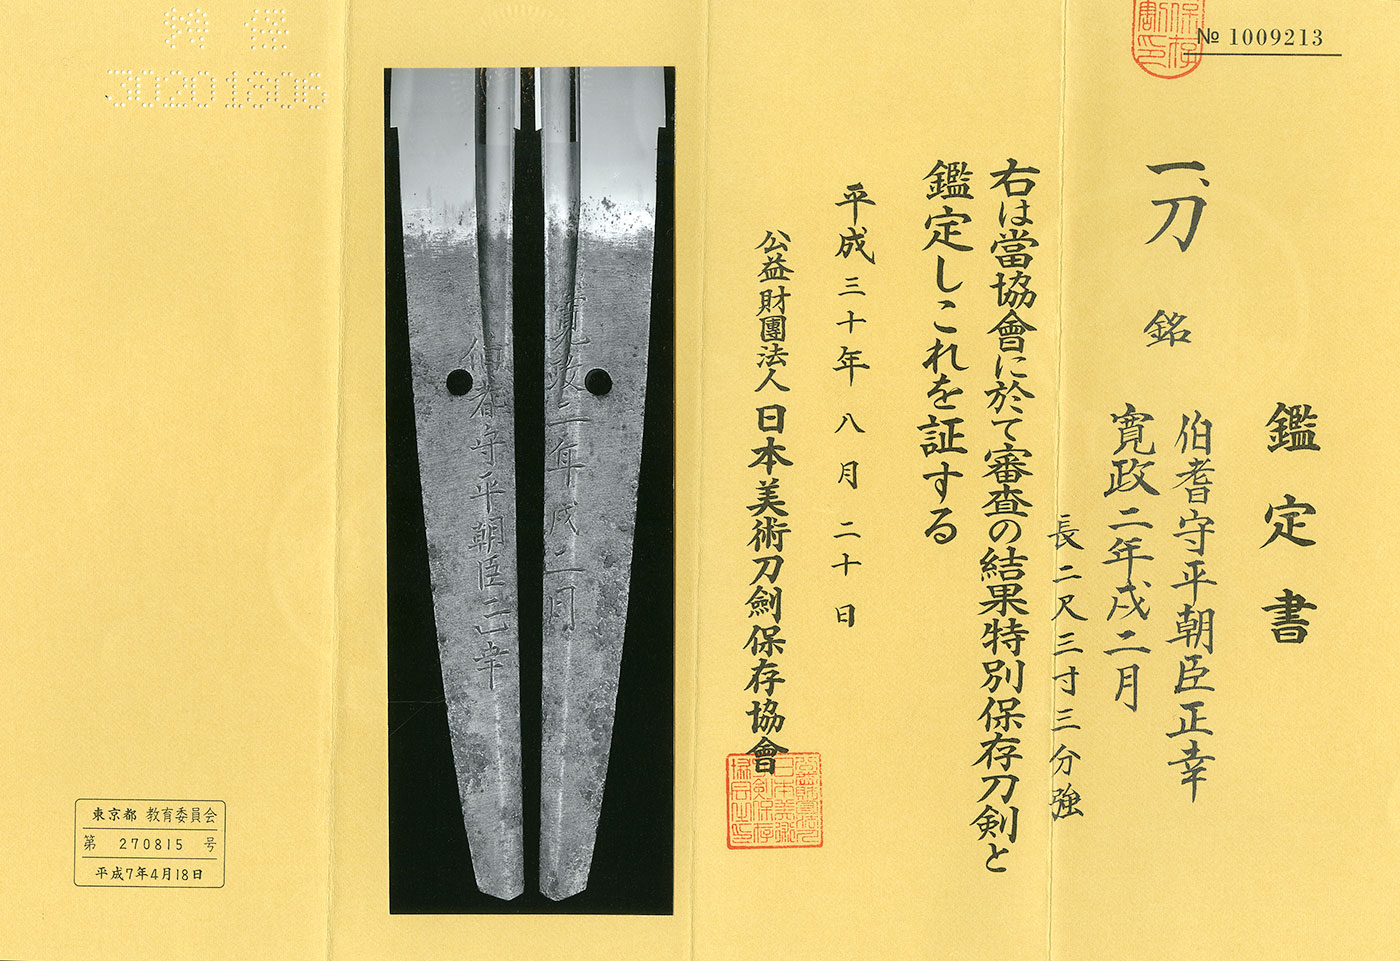 № 1009213
鑑定書
一、刀 銘 伯耆守平朝臣正幸
寛政二年戌二月
長二尺三寸三分強
右は當協會に於て審査の結果特別保存刀剣と
鑑定しこれを証する
平成三十年八月二十日
公益財團法人 日本美術刀劍保存協會
寛政二年戌二月
伯耆守平朝臣正幸
30201806
東京都 教育委員会
第 270815 号
平成7年4月18日